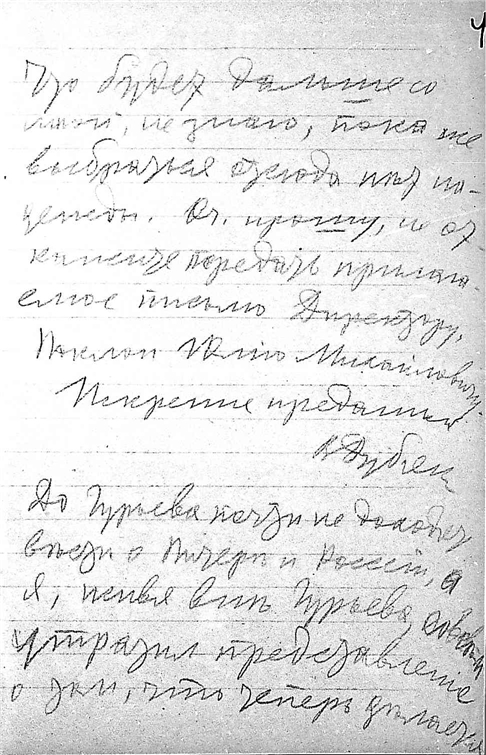 4
Что будет дальше со
мной, не знаю, пока же
выбраться отсюда нет на-
дежды. Оч. прошу, не от-
кажите передать прилага-
емое письмо Директору.
Поклон Юлию Михайловичу.
Искренне преданный
В Дубян
До Гурьева почти не доходят
вести о Питере и России, а
я, живя вне Гурьева,
утратил представление
о том, что теперь делается